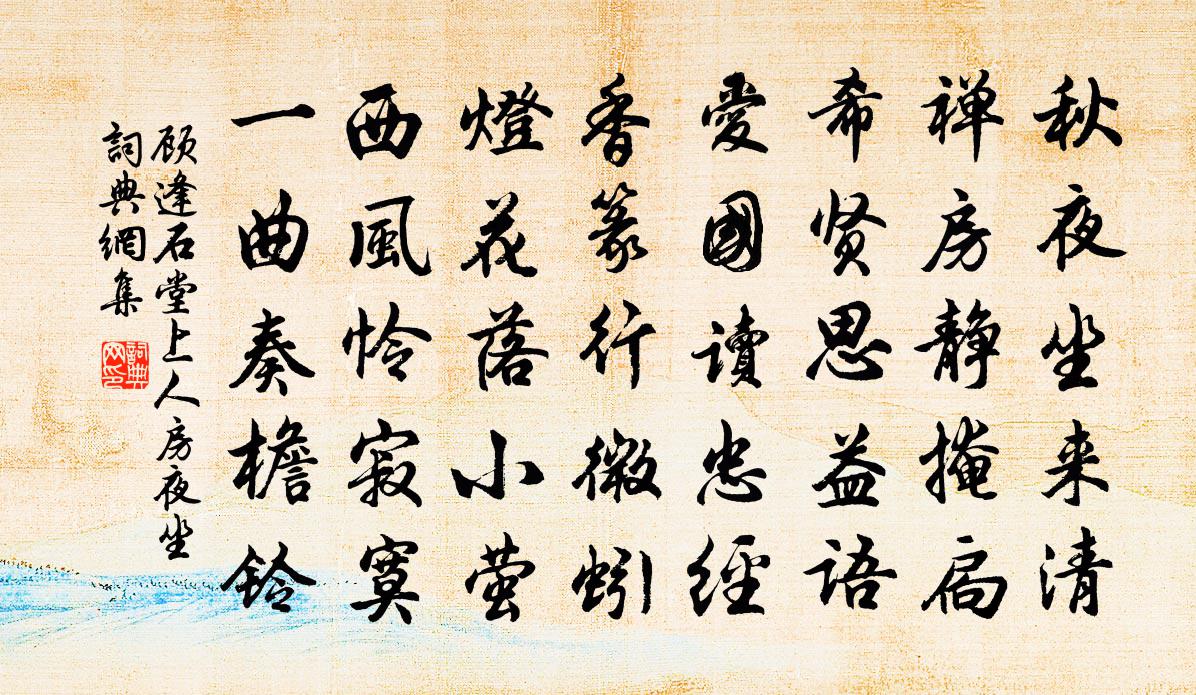 秋夜坐来清
禅房静掩扃
希贤思益语
愛國讀忠經
香篆行微蚓
燈花落小萤
西風怜寂寞
一曲奏檐铃
顾逢石堂上人房夜坐
詞典網集
詞典网印